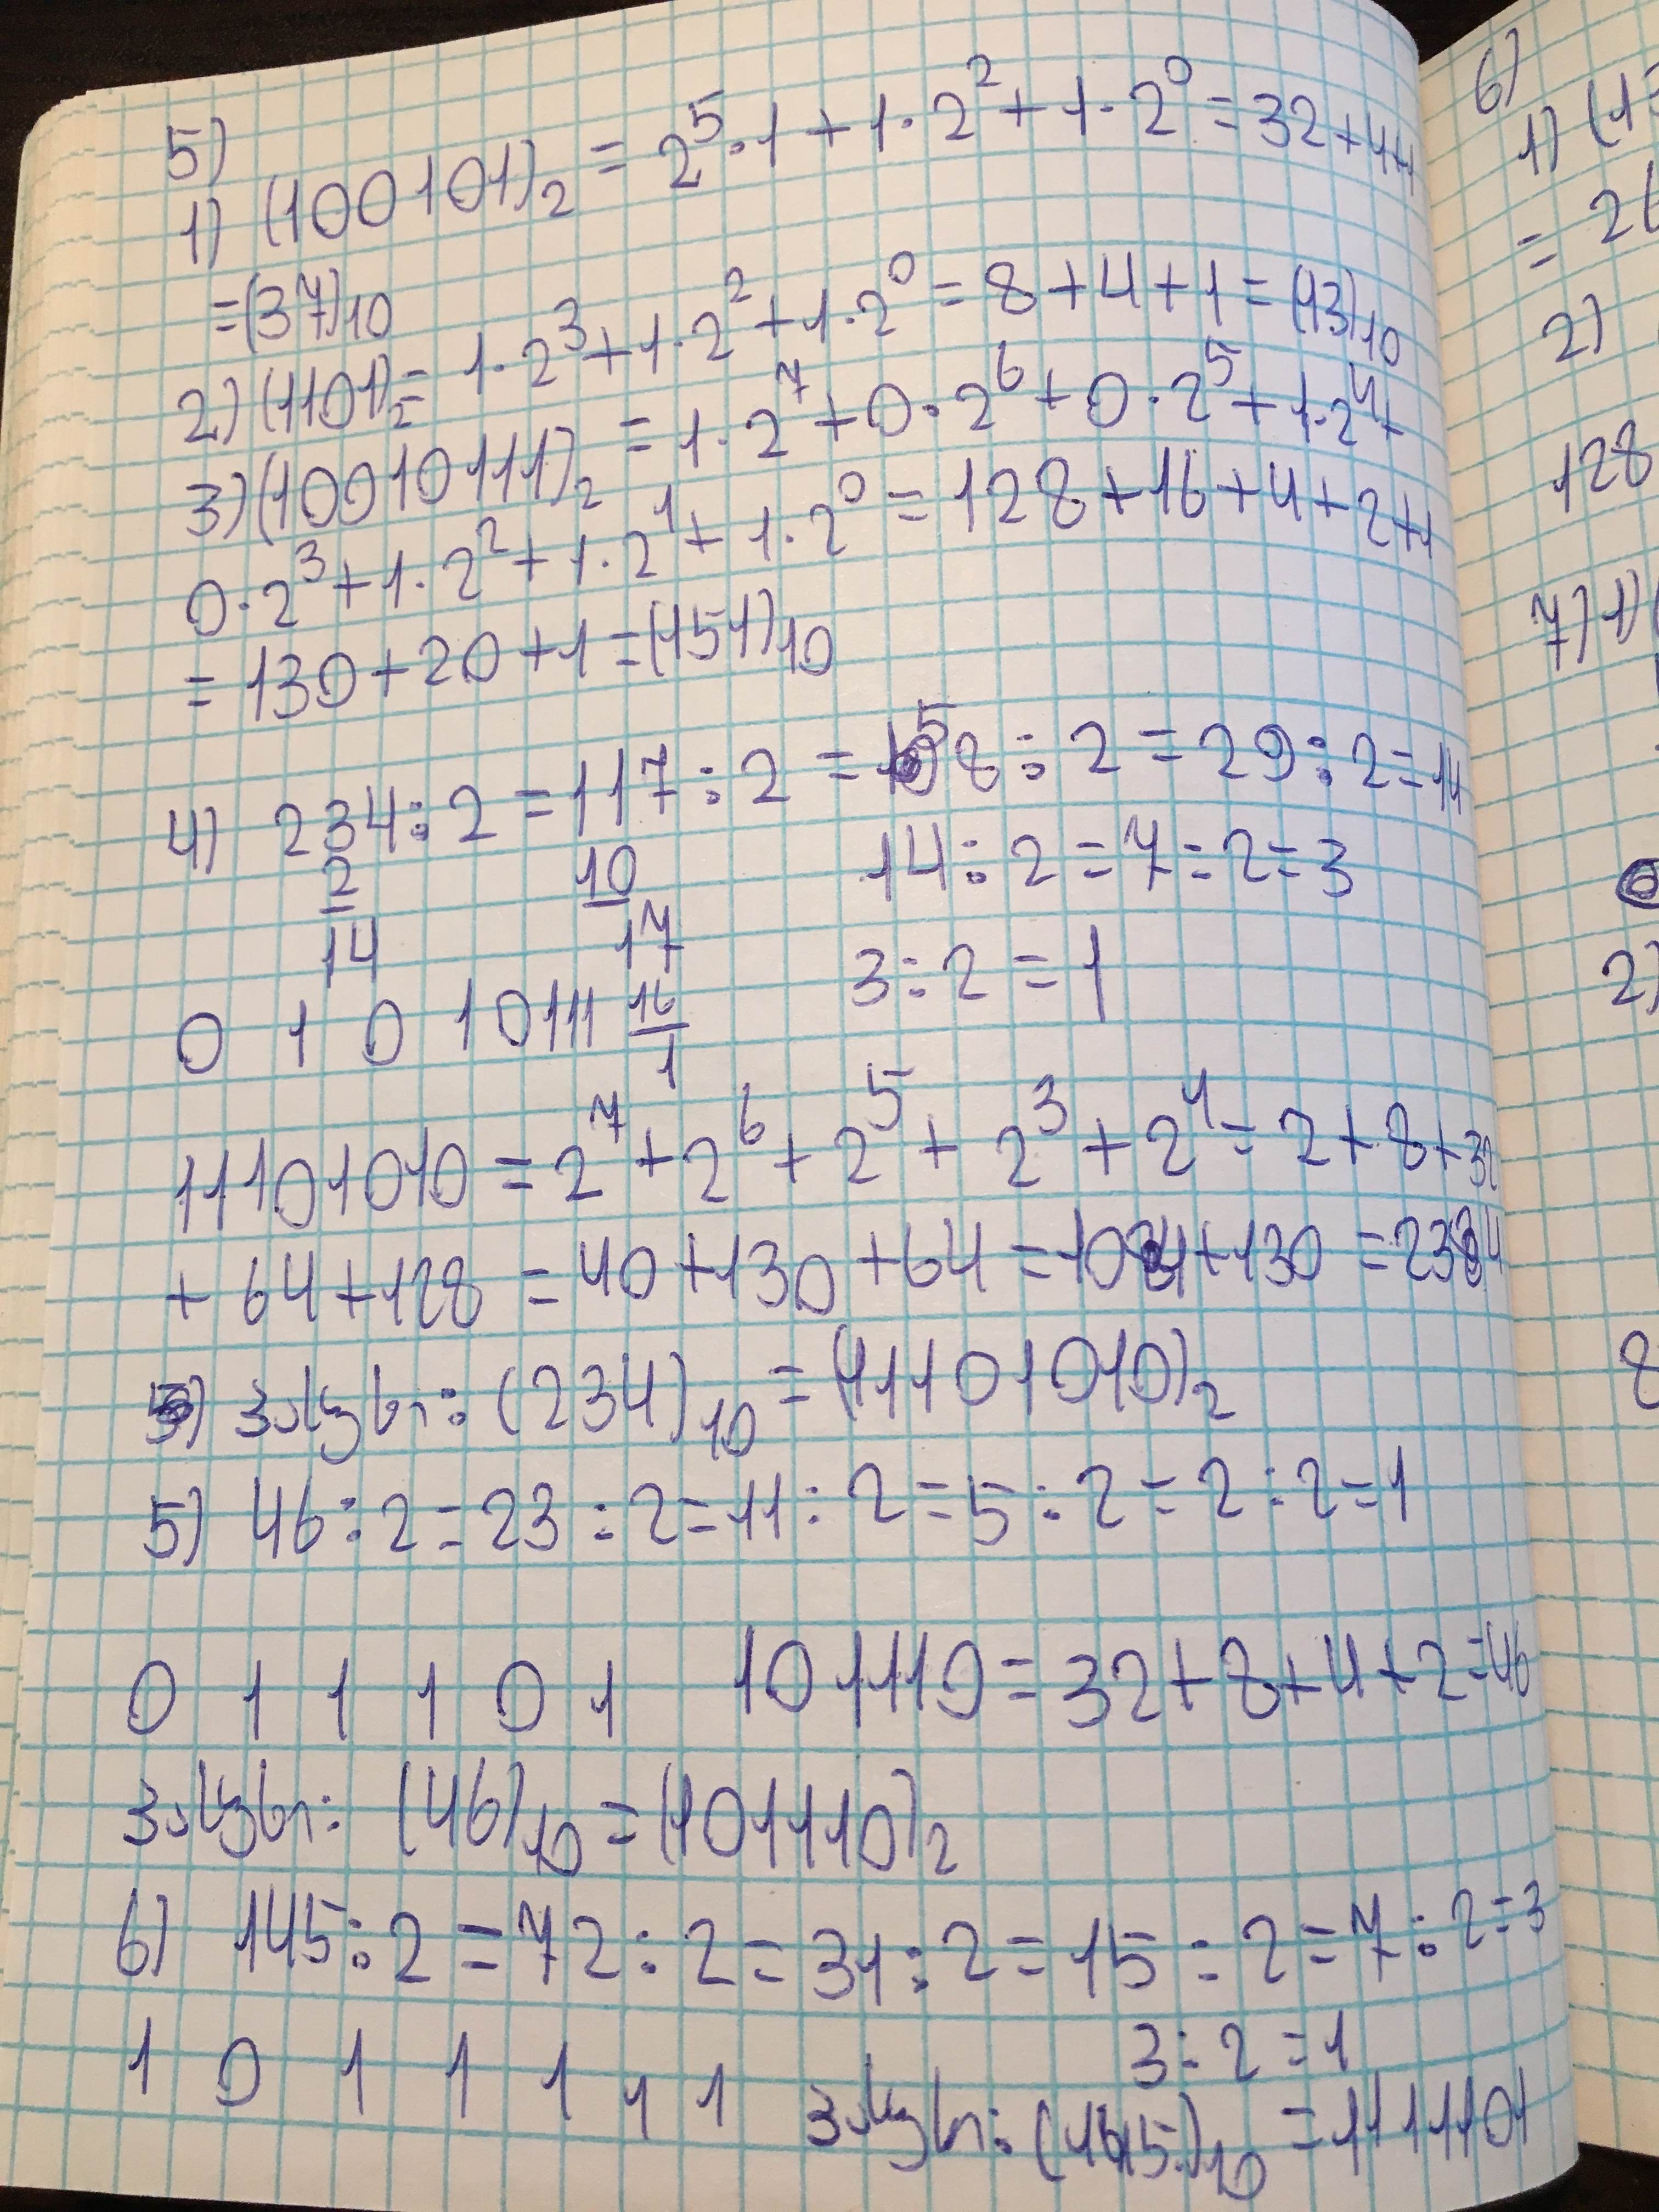 5)
1) (100101)₂ = 2⁵·1 + 1·2² + 1·2⁰ = 32+4+1
=(37)10
2) (1101)₂ = 1·2³+1·2²+1·2⁰ = 8+4+1 = (13)10
3) (10010111)₂ = 1·2⁷+0·2⁶+0·2⁵+1·2⁴+
0·2³+1·2²+1·2¹+1·2⁰ = 128+16+4+2+1
= 130+20+1=(151)10
4) 234:2 = 117:2 = 58:2=29:2=14
2
10
14:2=7:2=3
14
17
3:2=1
0 1 0 1 0111
16
1
11101010 = 2⁷+2⁶+2⁵+2³+2¹=2+8+32
+ 64+128 = 40+130+64=104+130 =234
(234)10 = (11101010)2
5) 46:2=23:2=11:2=5:2=2:2=1
0 1 1 1 0 1 101110=32+8+4+2=46
(46)10=(101110)2
6) 145:2=72:2=31:2=15:2=7:2=3
3:2=1
1 0 1 1 1 1 1
(145)10 =1111101
6)
1) (13
= 26
2)
128
7) 1)
2)
8